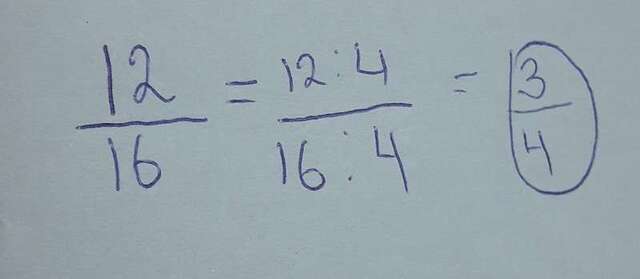 12/16 = 12:4/16:4 = 3/4